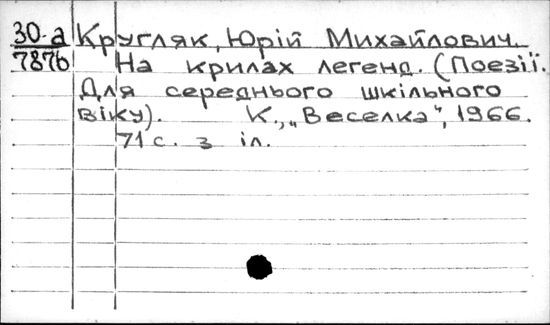 30-а Кругляк, Юрій Михайлович.
7876 На крилах легенд. (Поезії.
Для середнього шкільного
віку). К., „Веселка“, 1966.
71 с. з іл.